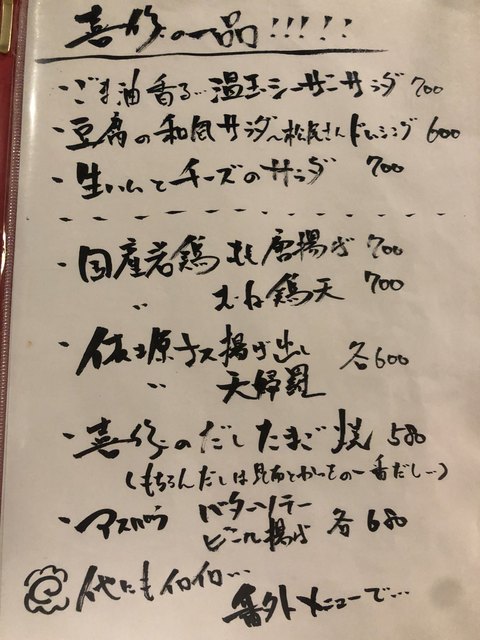 喜作の一品!!!!!
・ごま油香る…温玉シーザーサラダ 700
・豆腐の和風サラダ〜松尾さんドレッシング 600
・生ハムとチーズのサラダ 700
・国産若鶏もも唐揚げ 700
〃 むね鶏天 700
・佐土原ナス揚げ出し 各600
〃 天婦羅
・喜作のだしたまご焼 580
(もちろんだしは昆布とかつおの一番だし…)
・アスパラ バターソテー
ビール揚げ 各680
他にもイロイロ…
番外メニューで…